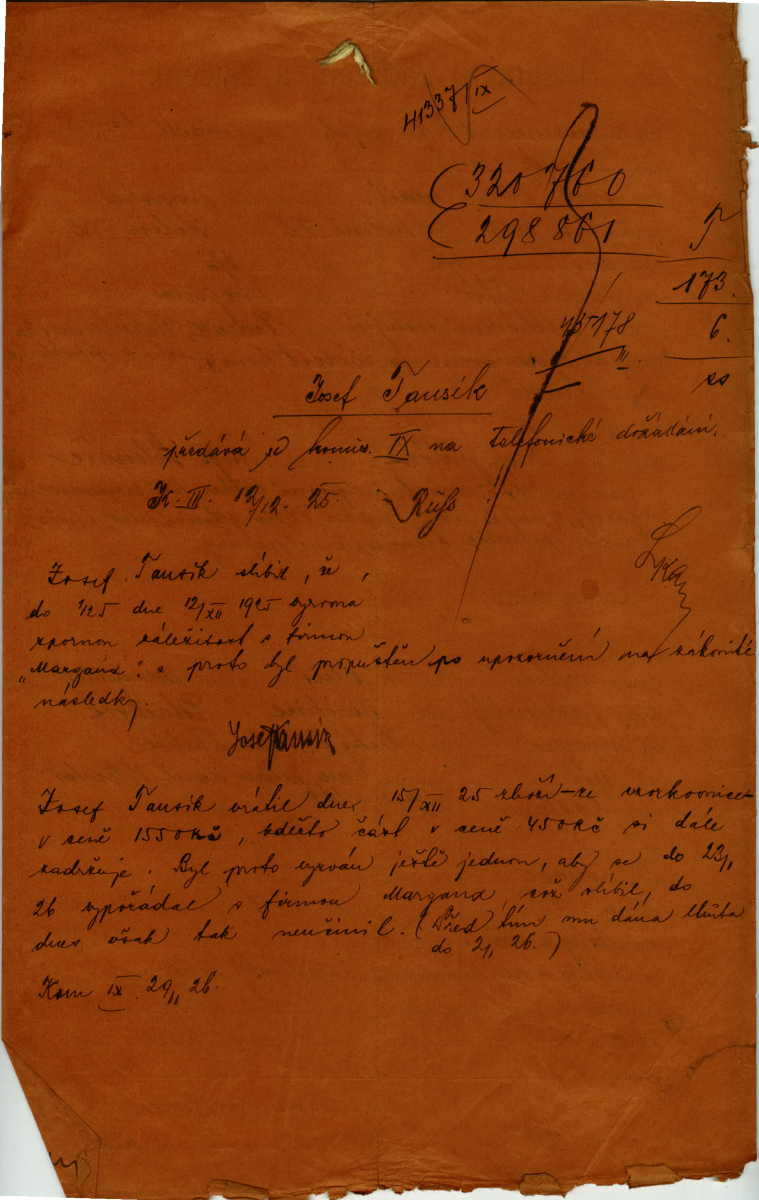 41337/IX
320760
298861
T
173.
6.
45178
III.
ss
Josef Tausik
předává se komis. IX na telefonické dožádání.
K. III. 12/12. 25. Růss
Josef Tausik slíbil, že
do 1/2 5 dne 12/XII 1925 vyrovná
spornou záležitost s firmou
"Margana" a proto byl propuštěn po upozornění na zákonité
následky.
Josef Tausik
Josef Tausik vrátil dnes 15/XII 25 zboží ze vzorkovnice
v ceně 1550 Kč, kdežto část v ceně 450 Kč si dále
zadržuje. Byl proto vyzván ještě jednou, aby se do 23/1
26 vypořádal s firmou Margana což slíbil, do
dnes však tak neučinil. (Před tím mu dána lhůta
do 2/1 26.)
Kom IX 29/1 26.